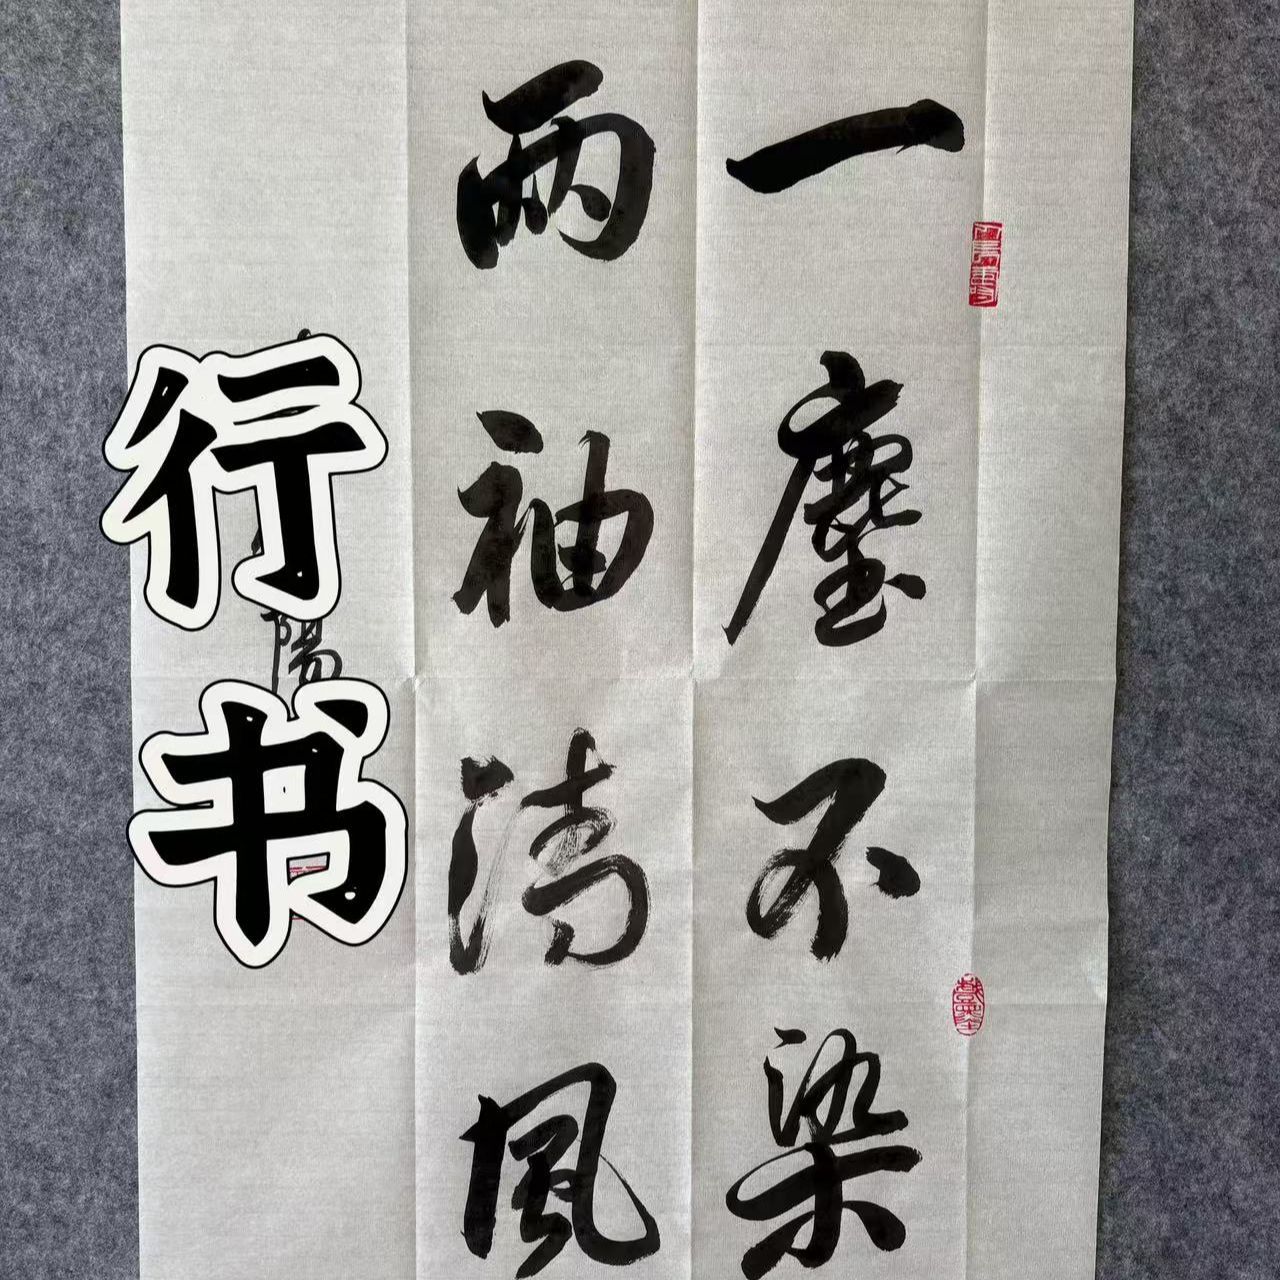 一塵不染
兩袖清風
陽
行书